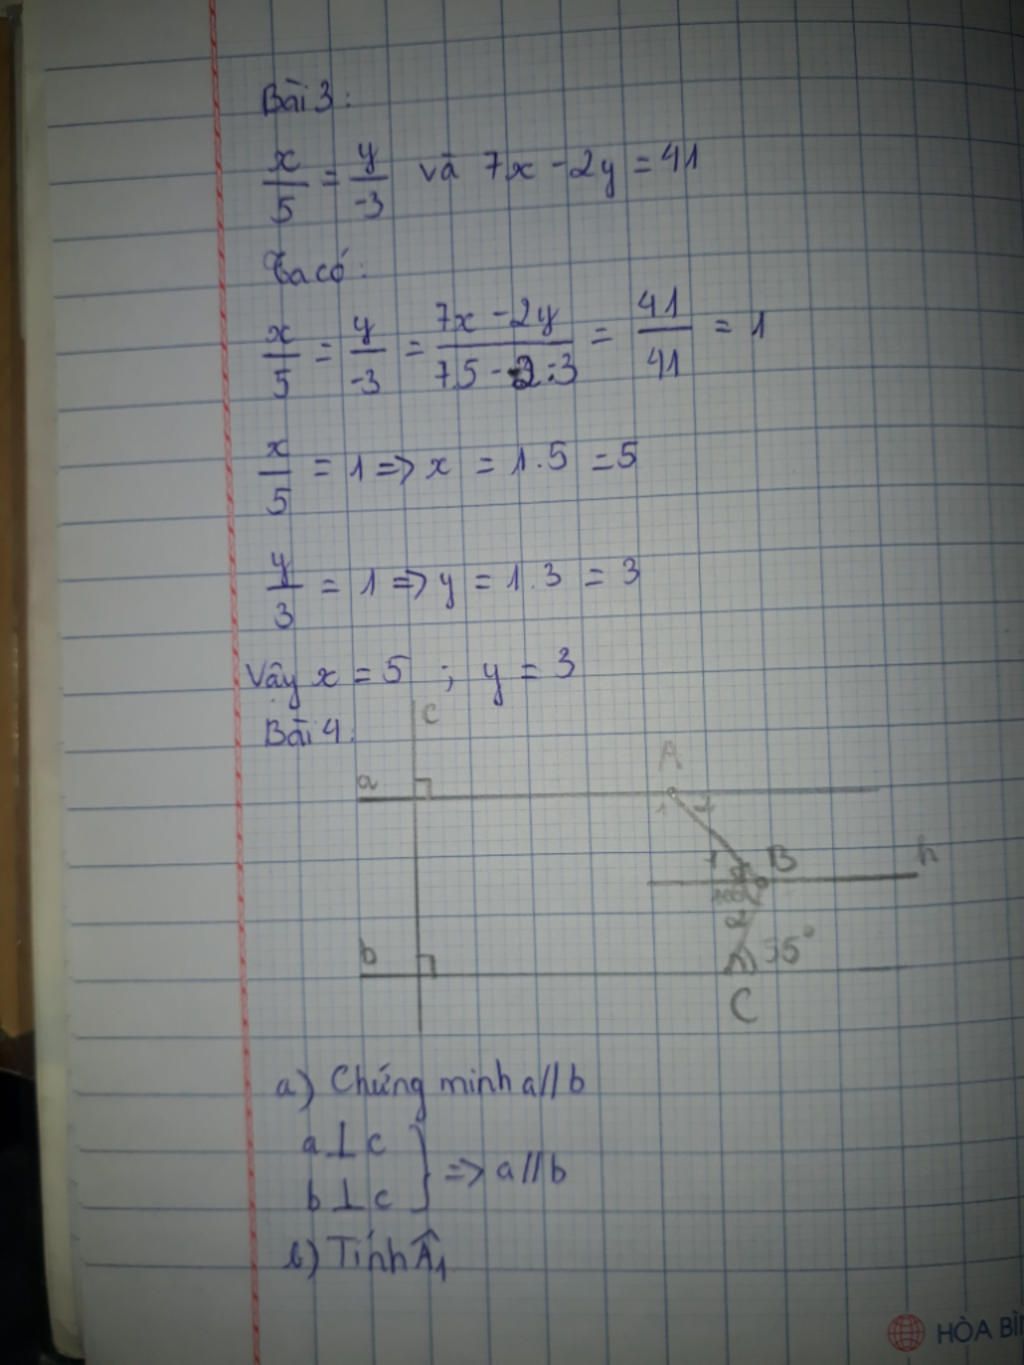 Bài 3:
x/5 = y/-3 và 7x - 2y = 41
Ta có:
x/5 = y/-3 = 7x - 2y/7.5 - 2.-3 = 41/41 = 1
x/5 = 1 => x = 1.5 = 5
y/3 = 1 => y = 1.3 = 3
Vậy x = 5 ; y = 3
c
Bài 4:
A
a
1 2
1 B h
b
2
35°
C
a) Chứng minh a // b
a ⊥ c
} => a // b
b ⊥ c
b) Tính Â1
HÒA BÌ